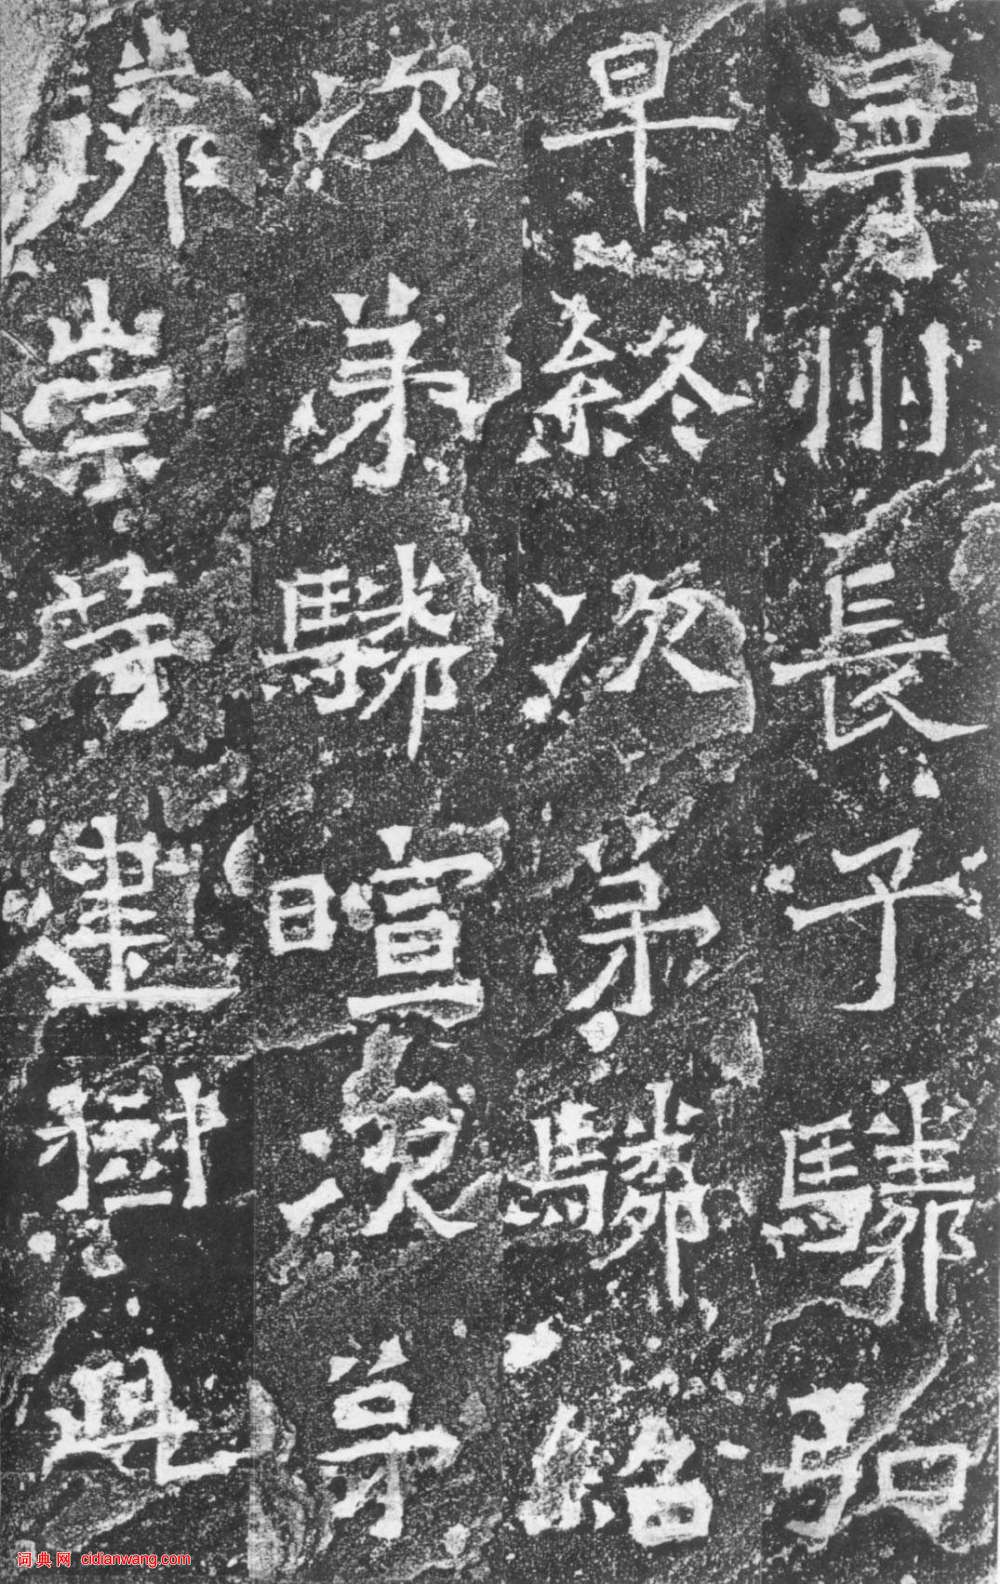 寧州長子驎弘
早終次弟驎紹
次弟驎暄次弟
驎崇等建樹此
词典网 cidianwang.com